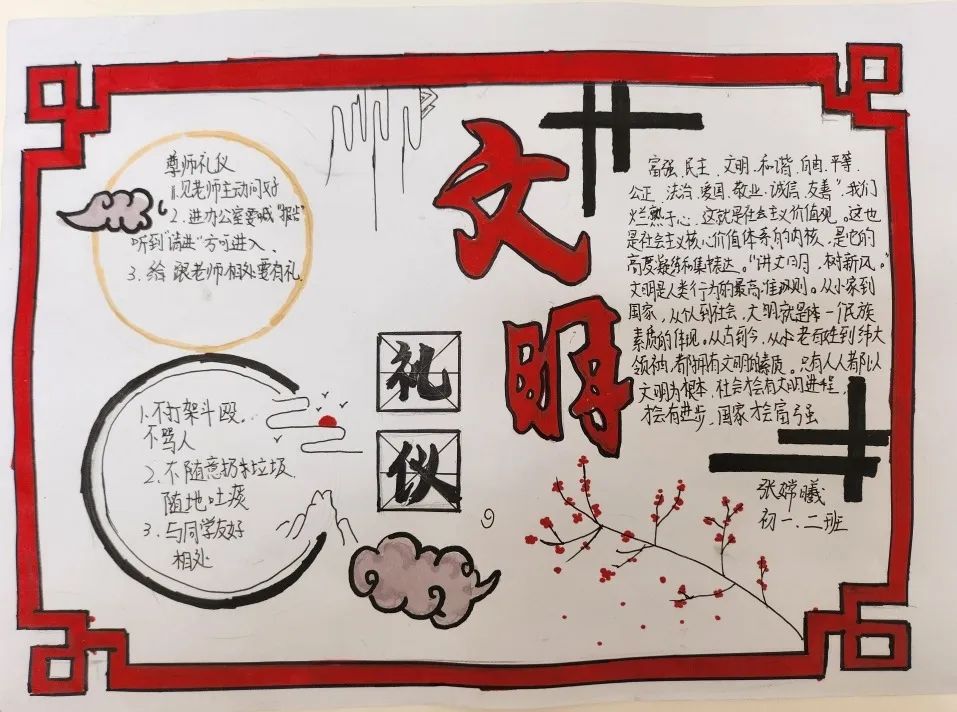 文明
礼仪
尊师礼仪
1.见老师主动问好
2.进办公室要喊"报告"
听到"请进"方可进入、
3.给 跟老师相处要有礼
1.不打架斗殴,
不骂人
2.不随意扔垃圾、
随地吐痰
3.与同学友好
相处
富强、民主、文明、和谐、自由、平等、
公正、法治、爱国、敬业、诚信、友善"我们
烂熟于心,这就是社会主义价值观。这也
是社会主义核心价值体系的内核,是它的
高度凝练和集中表达。"讲文明,树新风。"
文明是人类行为的最高准则。从小家到
国家,从人到社会,文明就是体一民族
素质的体现。从古到今,从小老百姓到伟大
领袖,都拥有文明的素质。只有人人都以
文明为根本,社会才会有文明进程,
才会有进步,国家才会富强
张嫦曦
初一.二班